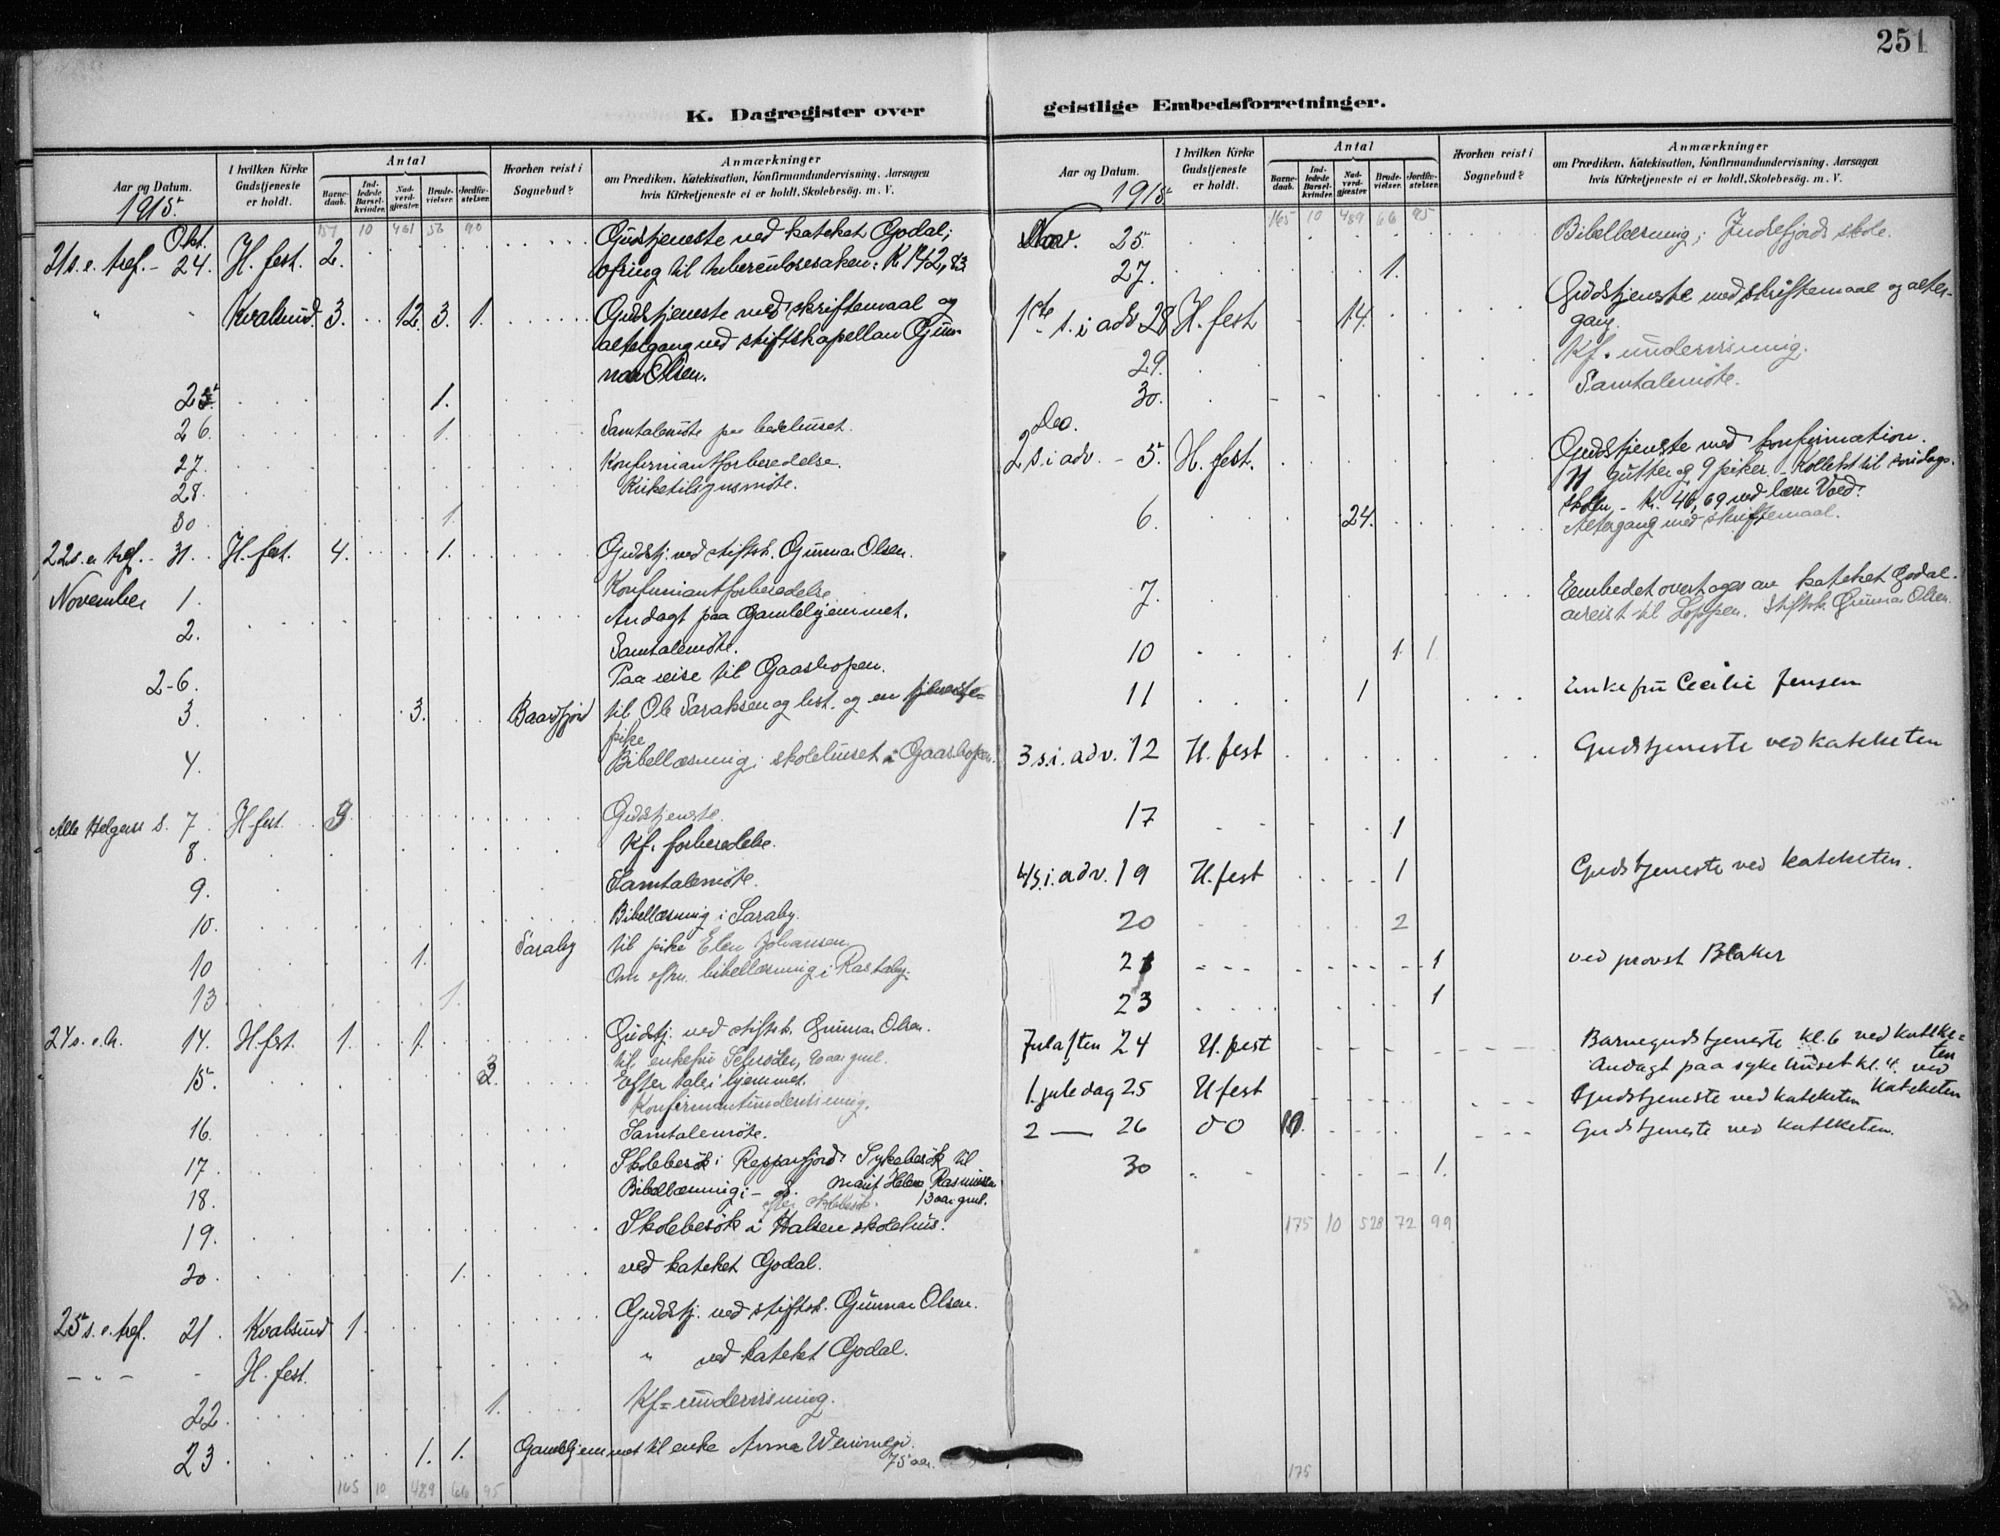 251
K. Dagregister over
geistlige Embedsforretninger.
Aar og Datum.
1915.
I hvilken Kirke Gudstjeneste er holdt.
Antal
Barnedaab.
Indledede Barselkvinder.
Nadverdgjæster.
Brudevielser.
Jordfæstelser.
Hvorhen reist i Sognebud?
Anmærkninger
om Prædiken. Katekisation, Konfirmandundervisning. Aarsagen
hvis Kirketjeneste ei er holdt, Skolebesøg. m. V.
157 10 461 56 90
Okt.
21 s. e. tref. - 24. H. fest. 2. Gudstjeneste ved kateket Godal;
ofring til tuberculosesaken: K 142,83.
" Kvalsund. 3. 12. 3. 1. Gudstjeneste med skriftemaal og
altergang ved stiftskapellan Gun-
nar Olsen.
25. 1.
26. 1. Samtalemöte paa bedehuset.
27. Konfirmantforberedelse.
28. Kirketilsynsmöte.
30 1.
22 s. e. tref. - 31. H. fest. 4. 1. Gudstj. ved stiftsk. Gunnar Olsen.
November 1. Konfirmantforberedelse
Andagt paa Gamlehjemmet.
2. Samtalemöte.
2-6. Paa reise til Gaashopen.
3. 3. Baardfjord til Ole Saraksen og hst. og en tjeneste-
pike
4. Bibellæsning i skolehuset i Gaashopen.
Alle Helgens s. 7. H. fest. 3 Gudstjenste.
8. Kf. forberedelse.
9. Samtalemöte.
10. Bibellæsning i Saraby.
10 1. Saraby til pike Elen Johansen.
Om efm. bibellæsning i Rastaby.
13 1.
24 s. e. tr. 14. H. fest. 1. 1. Gudstj. ved stiftsk. Gunnar Olsen.
til enkefru Schröder, 80 aar gml.
15. 2. Efter tale i hjemmet.
Konfirmantundervisning.
16. Samtalemöte.
17 Skolebesök i Repparfjord. Sykebesök til
18. Bibellæsning i - do. Marit Helene Rasmussen
efter skolebesök. 13 aar gml.
19. Skolebesök i Halsen skolehus.
20. 1. ved kateket Godal.
25 s. e. tref. 21. Kvalsund 1. Gudstj. ved stiftsk. Gunnar Olsen.
- " - - H. fest. " ved kateket Godal.
22. 1. Kf=undervisning.
23. 1. 1. Gamlehjemmet til enke Anna
75 aar.
165 10 489 66 95
Aar og Datum.
1915
I hvilken Kirke Gudstjeneste er holdt.
Antal
Barnedaab.
Indledede Barselkvinder.
Nadverdgjæster.
Brudevielser.
Jordfæstelser.
Hvorhen reist i Sognebud?
Anmærkninger
om Prædiken. Katekisation, Konfirmandundervisning. Aarsagen
hvis Kirketjeneste ei er holdt, Skolebesög. m. V.
165 10 489 66 95
Nov. 25. Bibellæsning i Indrefjords skole.
27. 1.
1ste s. i adv 28 H. fest 14. Gudstjenste med skriftemaal og alter-
gang.
29. Kf. undervisning.
30. Samtalemöte.
Dec.
2 s. i adv. - 5. H. fest. Gudstjenste med konfirmation.
11 gutter og 9 piker. Kollekt til söndags-
skolen - Kr. 46,69 ved lærer Vold.
6. 24. Altergang med skriftemaal.
7. Embedet overtages av kateket Godal.
avreist til Loppen. Stiftsk. Gunnar Olsen.
10 1 1
11 1 Enkefru Cecilie Jensen
3 s. i. adv. 12 H. fest Gudstjeneste ved kateketen
17 1
4 s. i. adv. 19 H. fest 1 Gudstjeneste ved kateketen.
20 2
21 1 ved provst Blaker
23 1
Julaften 24 H. fest Barnegudstjeneste kl. 6 ved kateke=
ten
Andagt paa sykehuset kl. 4. ved
Kateketen
1. juledag 25 H fest Gudstjeneste ved kateketen
2 — 26 do 10. Gudstjeneste ved kateketen.
30 " 1.
175 10 528 72 99
175